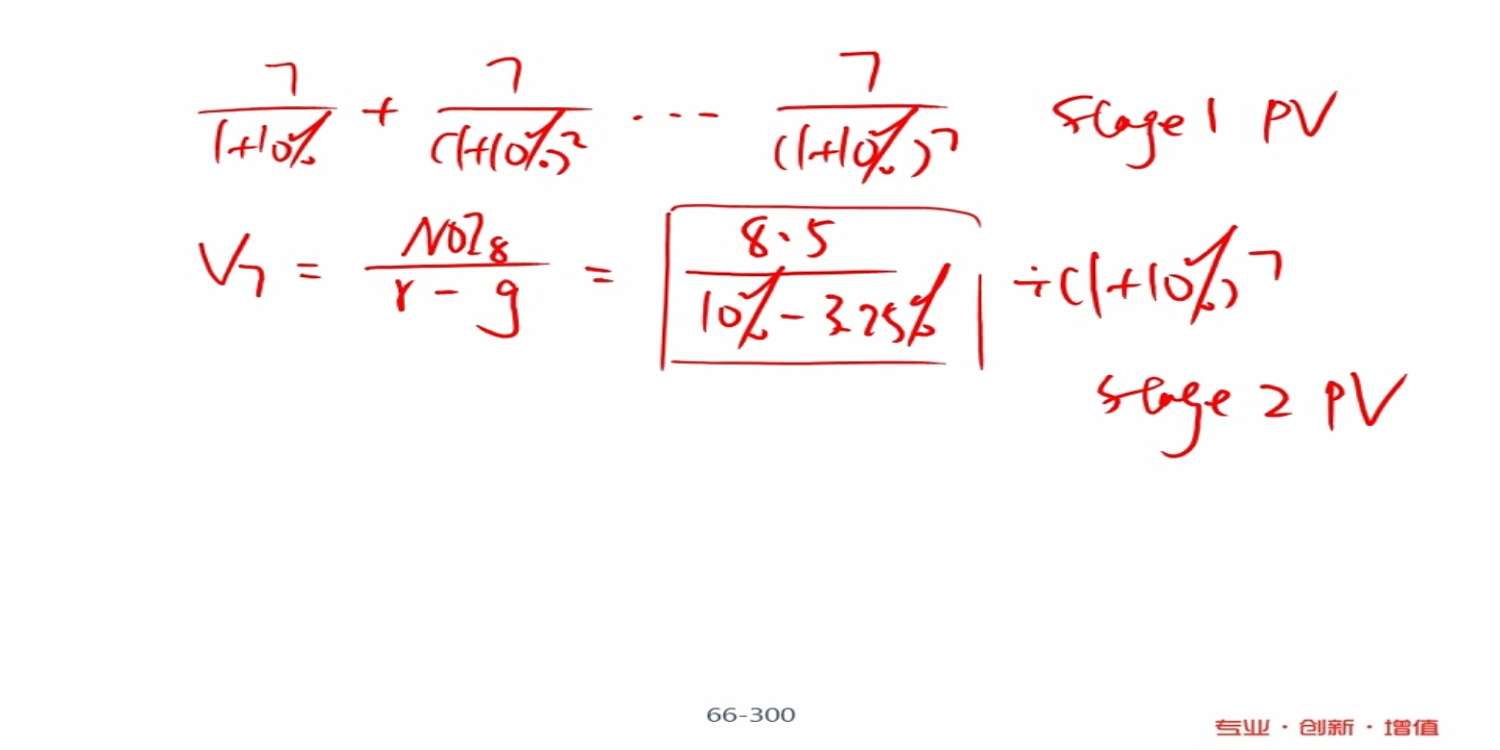 7/(1+10%) + 7/(1+10%)² ... 7/(1+10%)⁷ Stage 1 PV
V₇ = NOI₈/(r - g) = 8.5/(10% - 3.25%) ÷ (1+10%)⁷
Stage 2 PV
66-300
专业·创新·增值